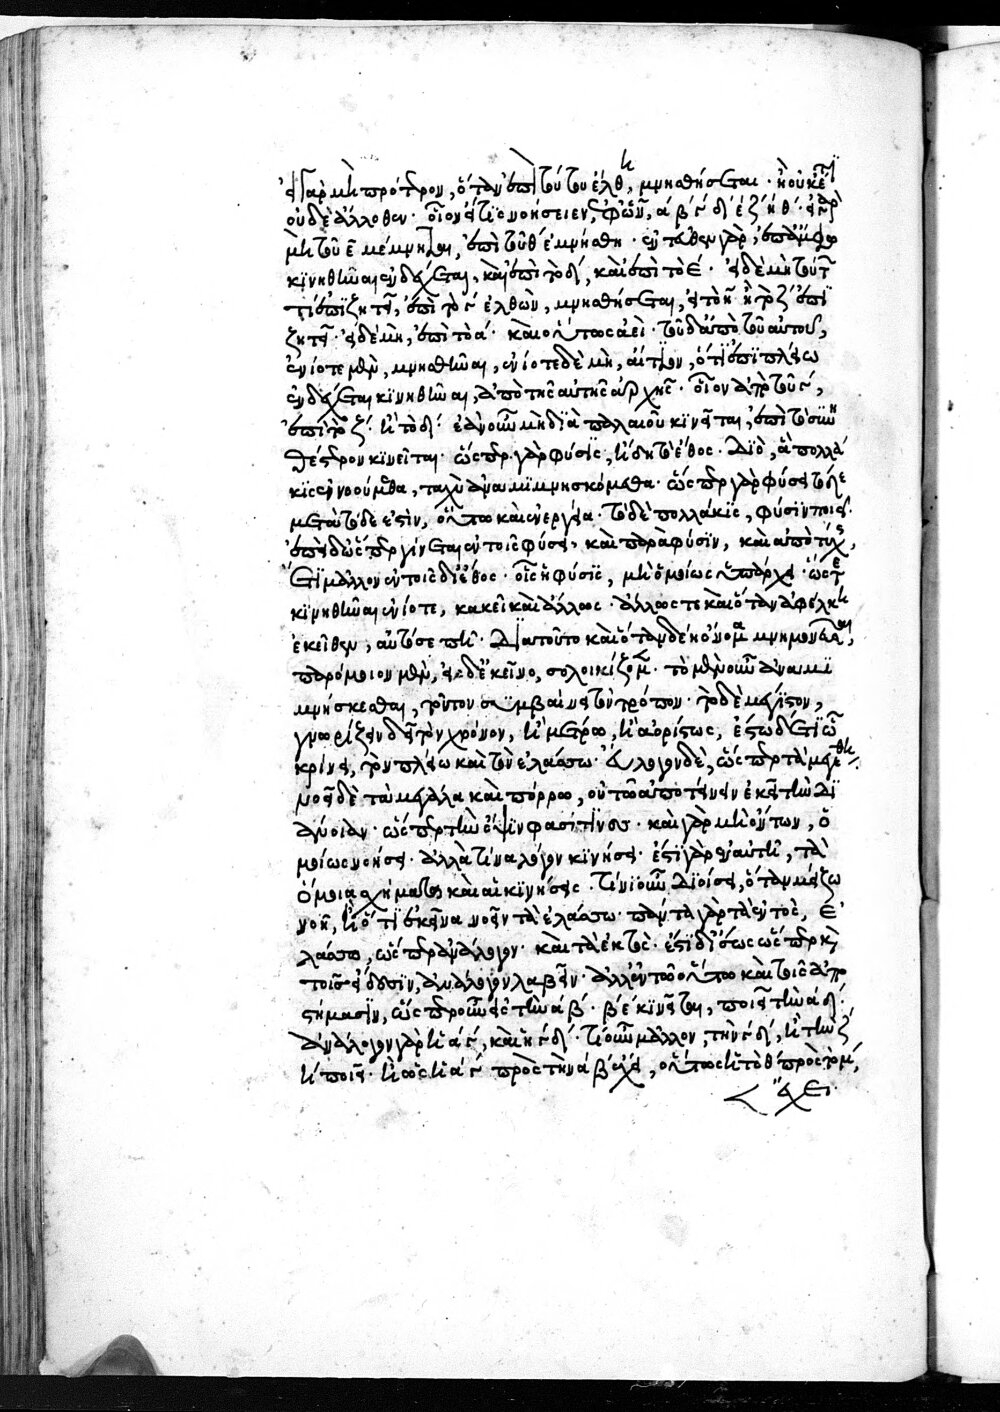 εἰ γὰρ μὴ πρότερον, ὅταν ἐπὶ τούτου ἔλθη, μνησθήσεται· ἢ οὐκέτι
οὐδὲ ἄλλοθεν· οἷον εἴ τις νοήσειεν, ἐφ' ὧν, α β γ δ ε ζ η θ· εἰ γὰρ
μὴ τοῦ ε μέμνηται, ἐπὶ τοῦ θ ἐμνήσθη· ἐντεῦθεν γὰρ, ἐπ' ἄμφω
κινηθῆναι ἐνδέχεται, καὶ ἐπὶ τὸ δ, καὶ ἐπὶ τὸ ε· εἰ δὲ μὴ τούτων
τι ἐπιζητεῖ, ἐπὶ τὸ γ ἐλθὼν, μνησθήσεται, εἰ τὸ η ἢ τὸ ζ ἐπι
ζητεῖ· εἰ δὲ μὴ, ἐπὶ τὸ α· καὶ οὕτως ἀεὶ· τοῦ δ' ἀπὸ τοῦ αὐτοῦ,
ἐνίοτε μὲν, μνησθῆναι, ἐνίοτε δὲ μὴ, αἴτιον, ὅτι ἐπὶ πλείω
ἐνδέχεται κινηθῆναι, ἀπὸ τῆς αὐτῆς ἀρχῆς· οἷον ἀπὸ τοῦ γ,
ἐπὶ τὸ ζ ἢ τὸ δ· ἐὰν οὖν μὴ διὰ παλαιοῦ κινῆται, ἐπὶ τὸ συνη
θέστερον κινεῖται· ὥσπερ γὰρ φύσις, ἤδη τὸ ἔθος· διὸ, ἃ πολλά
κις ἐννοούμεθα, ταχὺ ἀναμιμνησκόμεθα· ὥσπερ γὰρ φύσει τόδε
μετὰ τόδε ἐστὶν, οὕτω καὶ ἐνεργεία· τὸ δὲ πολλάκις, φύσιν ποιεῖ·
ἐπεὶ δ' ὥσπερ γίνεται ἐν τοῖς φύσει καὶ παρὰ φύσιν, καὶ ἀπὸ τύχης,
ἔτι μᾶλλον ἐν τοῖς δι' ἔθος· οἷς ἡ φύσις, μὴ ὁμοίως ὑπάρχει· ὥστε
κινηθῆναι ἐνίοτε, κἀκεῖ καὶ ἄλλως· ἄλλως τε καὶ ὅταν ἀφέλκη
ἐκεῖθεν, αὐτόσε πη· διὰ τοῦτο καὶ ὅταν δέη ὄνομα μνημονεῦσαι,
παρόμοιον μὲν, εἰς δ' ἐκεῖνο, σολοικίζομεν· τὸ μὲν οὖν ἀναμι
μνήσκεσθαι, τοῦτον συμβαίνει τὸν τρόπον· τὸ δὲ μέγιστον,
γνωρίζειν δεῖ τὸν χρόνον, ἢ μέτρω, ἢ ἀορίστως, ἔστω δέ τι ᾧ
κρίνει, τὸν πλείω καὶ τὸν ἐλάσσω· εὔλογον δὲ, ὥσπερ τὰ μεγέθη·
νοεῖ δὲ τὰ μεγάλα καὶ πόρρω, οὐ τῶ ἀποτείνειν ἐκεῖ τὴν δι
άνοιαν· ὥσπερ τὴν ὄψιν φασί τινες· καὶ γὰρ μὴ ὄντων, ὁ
μοίως νοήσει· ἀλλὰ τῆ ἀνάλογον κινήσει· ἔστι γὰρ ἐν αὐτῆ, τὰ
ὅμοια σχήματα καὶ αἱ κινήσεις· τίνι οὖν διοίσει, ὅταν μείζω
νοῆ, ἢ ὅτι ἐκεῖνα νοεῖ τὰ ἐλάσσω· πάντα γὰρ τὰ ἐντὸς, ἐ
λάσσω, ὥσπερ ἀνάλογον· καὶ τὰ ἐκτὸς· ἔστι δ' ἴσως ὥσπερ καὶ
τοῖς εἴδεσιν, ἀνάλογον λαβεῖν· ἄλλο ἐν αὐτῶ οὕτω καὶ τοῖς ἀπο
στήμασιν, ὥσπερ οὖν εἰ τὴν α β· β ε κινεῖται, ποιεῖ τὴν α δ·
ἀνάλογον γὰρ ἡ α γ, καὶ ἡ γ δ· τί οὖν μᾶλλον, τὴν γ δ, ἢ τὴν ζ
η ποιεῖ· ἢ ὡς ἡ α γ πρὸς τὴν α β ἔχει, οὕτως ἡ τὸ θ πρὸς τὸ μ,
ἔχει·